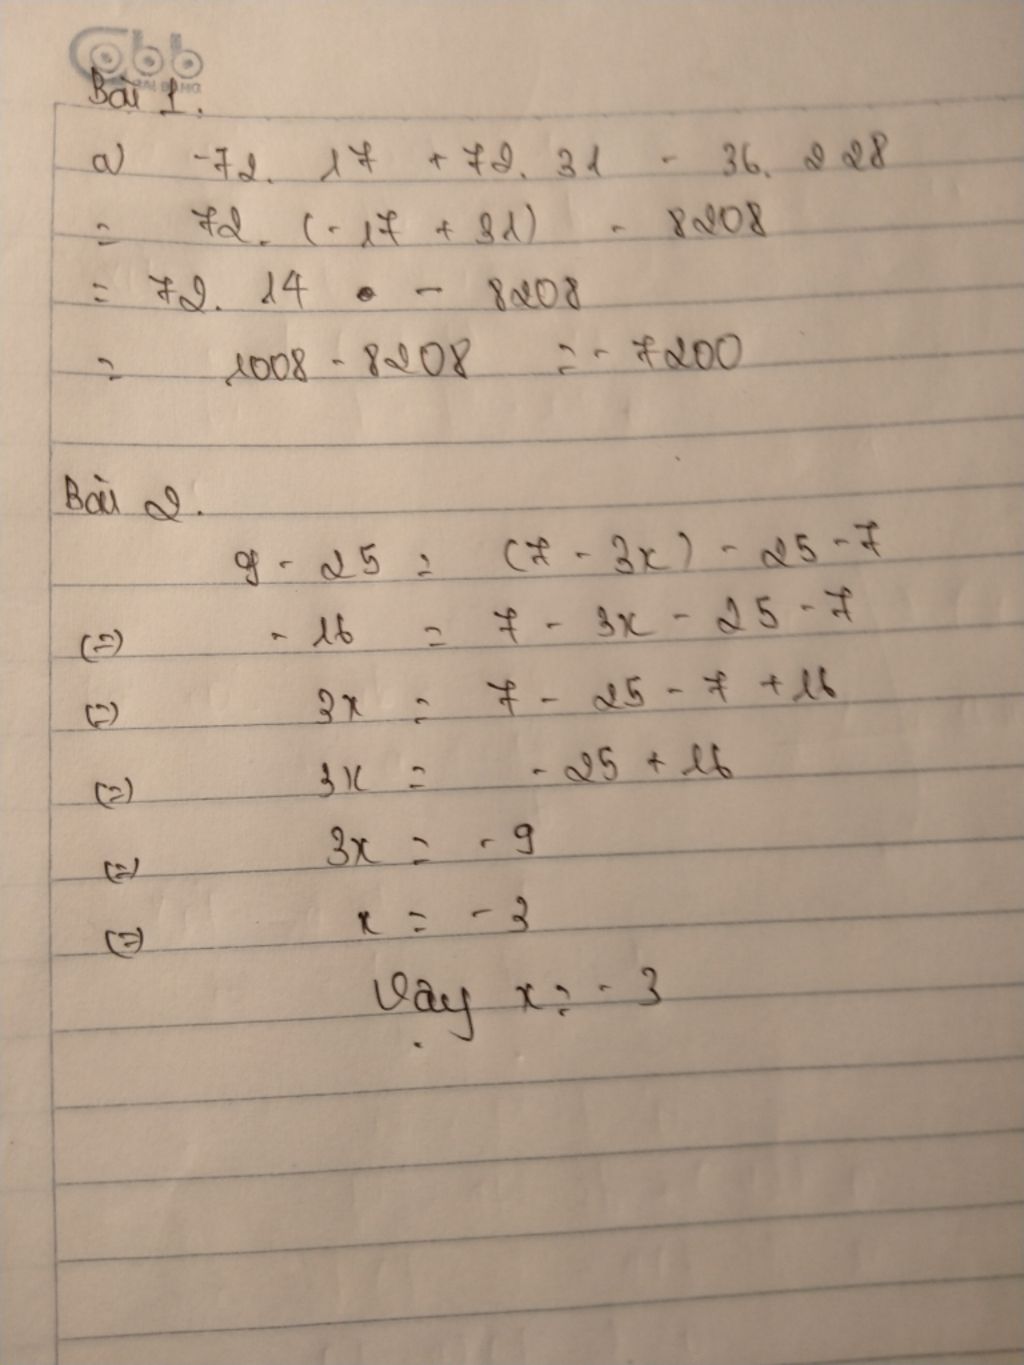 Cabb
Bài 1.
a) -72. 17 + 72. 31 - 36. 228
= 72. (-17 + 31) - 8208
= 72. 14 - 8208
= 1008 - 8208 = - 7200
Bài 2.
9 - 25 = (7 - 3x) - 25 - 7
(=) - 16 = 7 - 3x - 25 - 7
(=) 3x = 7 - 25 - 7 + 16
(=) 3x = - 25 + 16
(=) 3x = - 9
(=) x = - 3
Vậy x = - 3